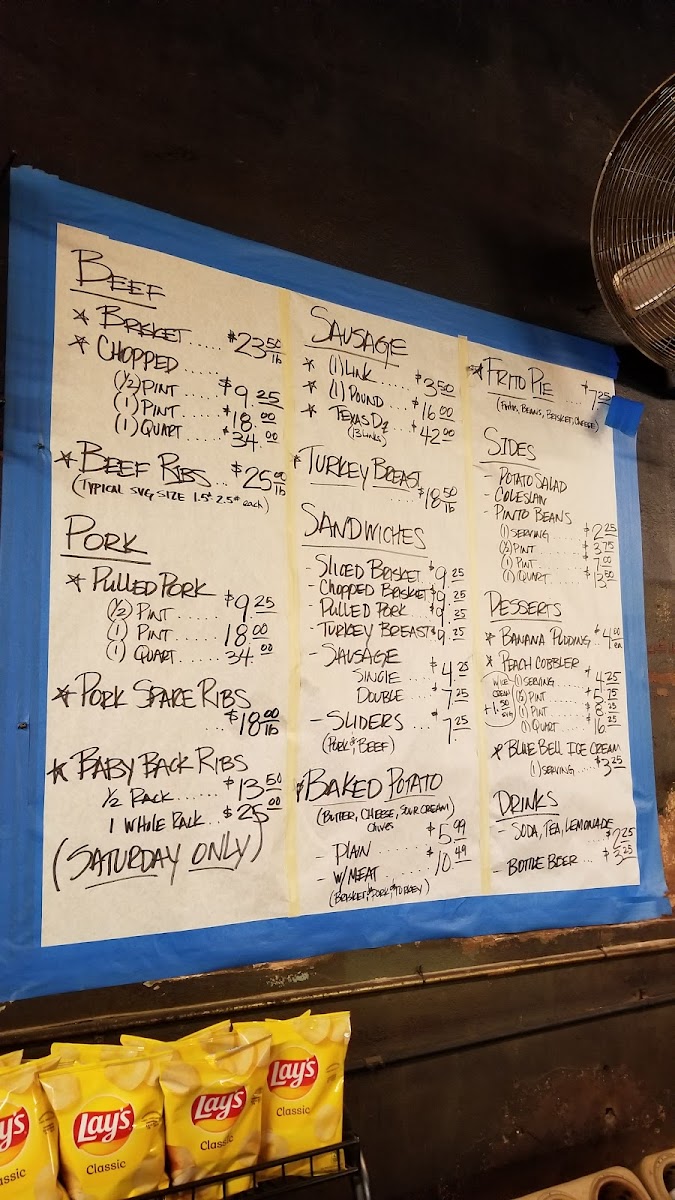 BEEF
* BRISKET..... $23.50 lb
* CHOPPED.....
(1/2) PINT..... $9.25
(1) PINT..... $18.00
(1) QUART..... $34.00
* BEEF RIBS... $25.00 lb
(TYPICAL SVG SIZE 1.5# 2.5# each)
PORK
* PULLED PORK
(1/2) PINT..... $9.25
(1) PINT..... 18.00
(1) QUART..... 34.00
* PORK SPARE RIBS
... $18.00 lb
* BABY BACK RIBS
1/2 RACK...... $13.50
1 WHOLE RACK.. $25.00
(SATURDAY ONLY)
SAUSAGE
* (1) LINK..... $3.50
* (1) POUND.... $16.00
* TEXAS DZ.... $42.00
(13 LINKS)
* TURKEY BREAST
..... $18.50 lb
SANDWICHES
- SLICED BRISKET $9.25
- CHOPPED BRISKET $9.25
- PULLED PORK $9.25
- TURKEY BREAST $9.25
- SAUSAGE
SINGLE $4.25
DOUBLE $7.25
- SLIDERS ... $7.25
(PORK & BEEF)
* BAKED POTATO
(BUTTER, CHEESE, SOUR CREAM)
CHIVES
- PLAIN ..... $5.99
- W/ MEAT ..... $10.49
(BRISKET, PORK, TURKEY)
* FRITO PIE ... $7.25
(FRITOS, BEANS, BRISKET, CHEESE)
SIDES
- POTATO SALAD
- COLESLAW
- PINTO BEANS
(1) SERVING..... $2.25
(1/2) PINT..... $3.75
(1) PINT..... $7.00
(1) QUART..... $13.50
DESSERTS
* BANANA PUDDING $4.00 ea
* PEACH COBBLER
(1) SERVING.... $4.25
(1/2) PINT..... $5.75
(1) PINT..... $8.25
(1) QUART..... $16.25
W/ ICE
CREAM
+1.50
* BLUE BELL ICE CREAM
(1) SERVING..... $3.25
DRINKS
- SODA, TEA, LEMONADE
..... $2.25
- BOTTLE BEER... $3.25
Lay's
Classic
Lay's
Classic
Lay's
Classic
Lay's
Classic